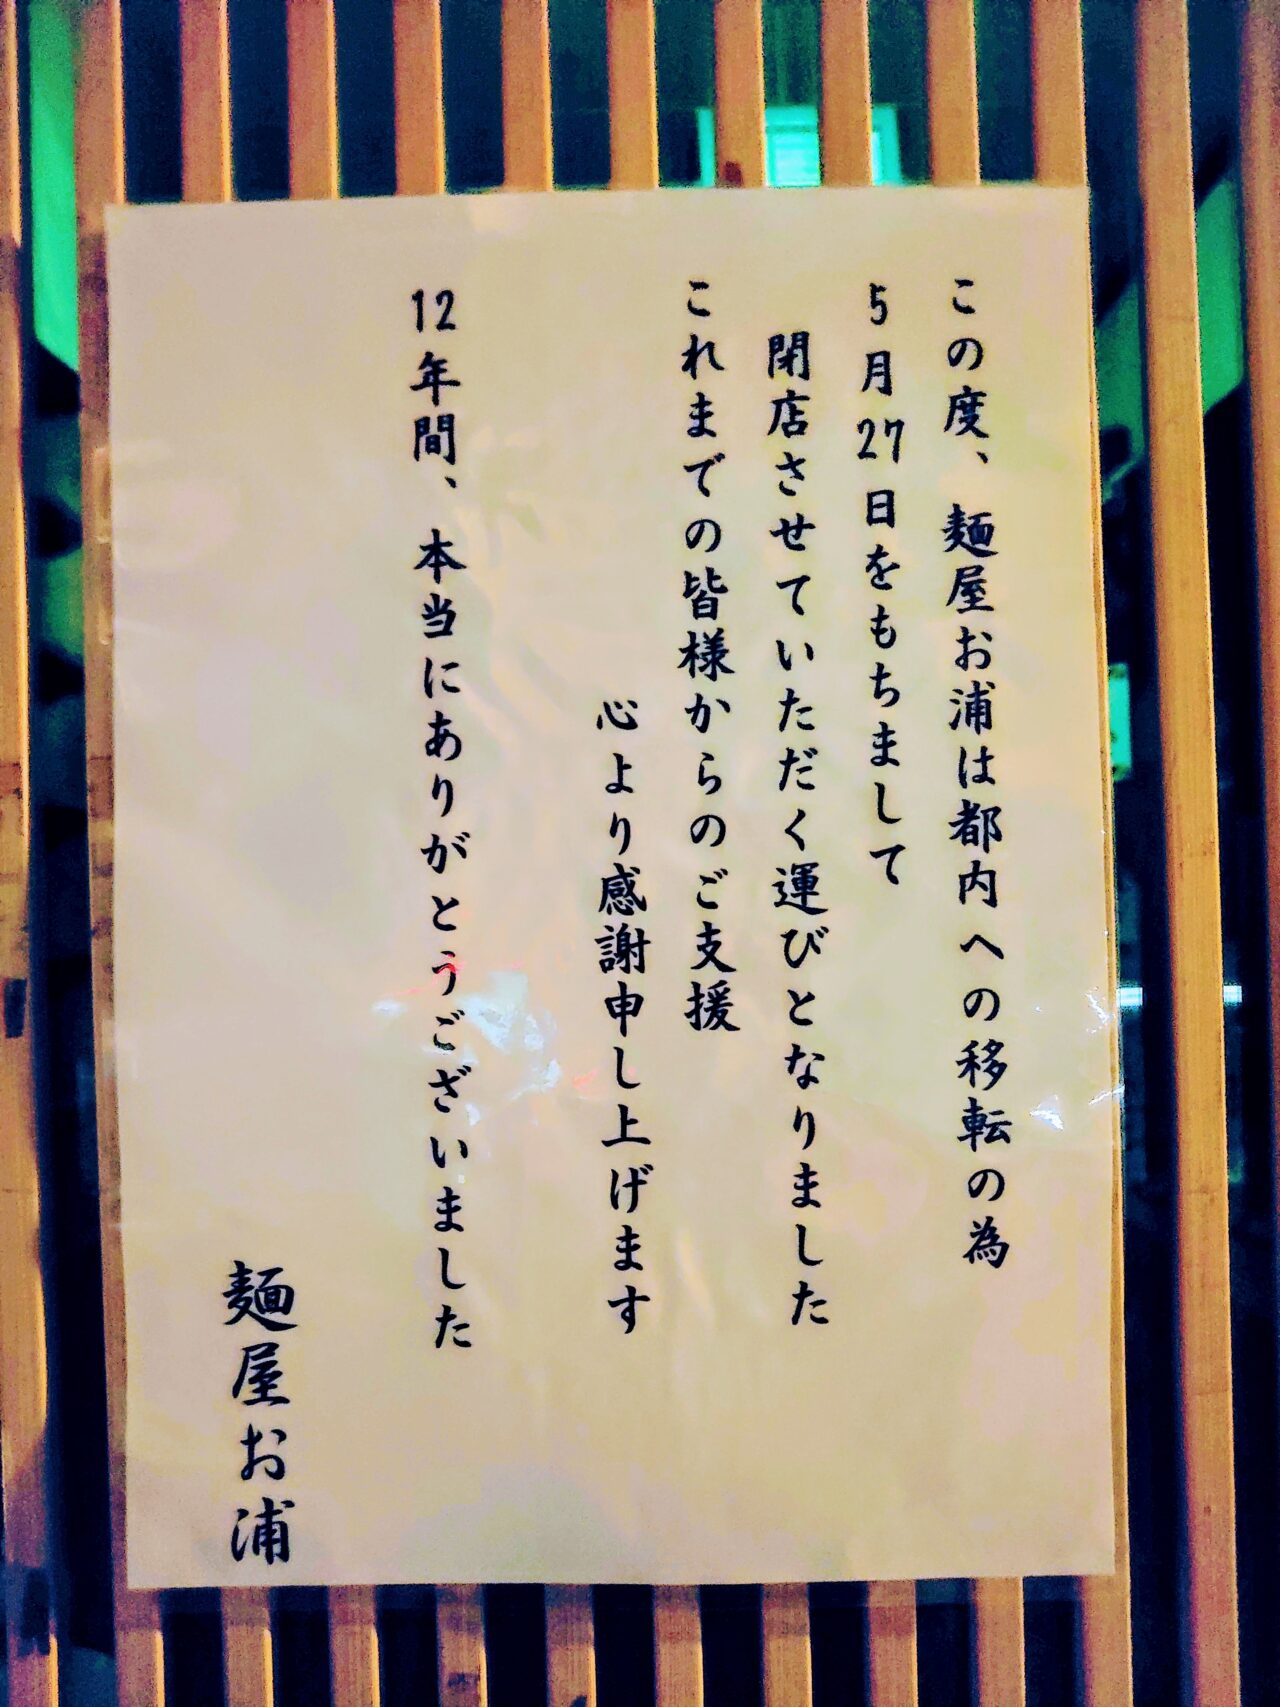 この度、麺屋お浦は都内への移転の為
5月27日をもちまして
閉店させていただく運びとなりました
これまでの皆様からのご支援
心より感謝申し上げます
12年間、本当にありがとうございました
麺屋お浦